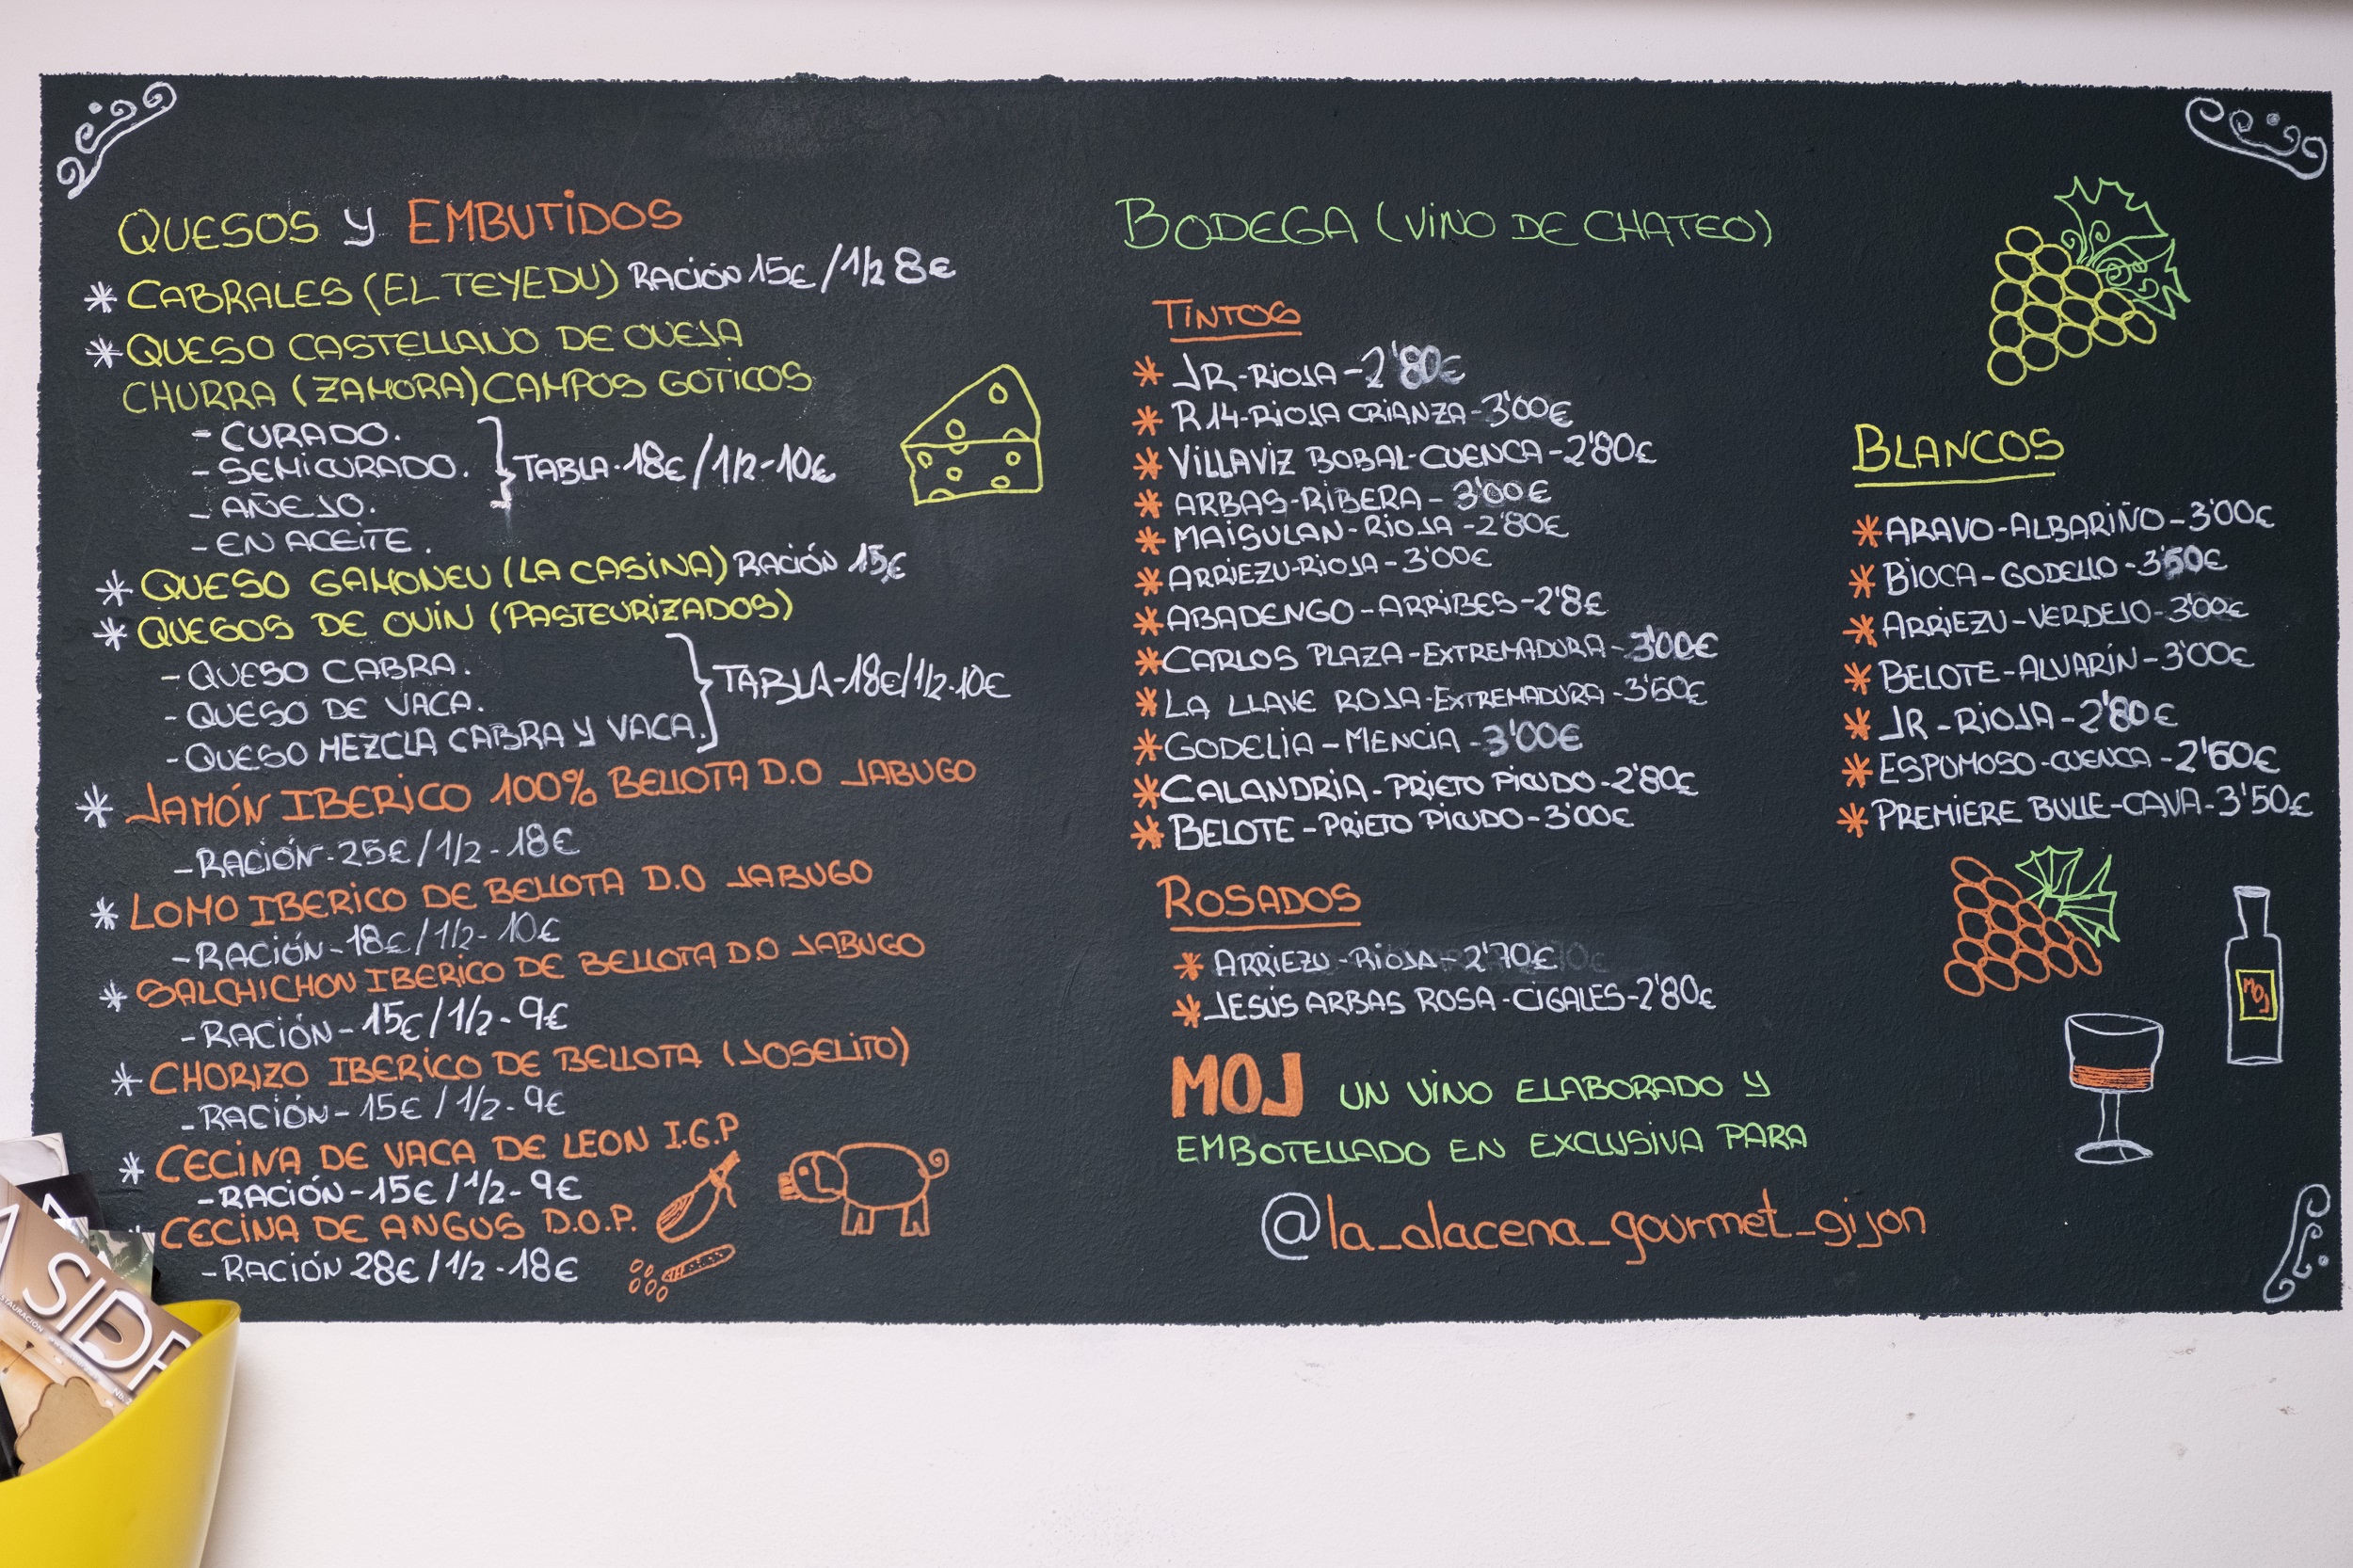 QUESOS y EMBUTIDOS
* CABRALES (EL TEYEDU) RACIÓN 15€ / 1/2 8€
* QUESO CASTELLANO DE OVEJA
CHURRA (ZAMORA) CAMPOS GOTICOS
- CURADO.
- SEMICURADO.
- AÑEJO.
- EN ACEITE.
TABLA-18€ / 1/2-10€
* QUESO GAMONEU (LA CASINA) RACIÓN 15€
* QUESOS DE OVIN (PASTEURIZADOS)
- QUESO CABRA.
- QUESO DE VACA.
- QUESO MEZCLA CABRA Y VACA.
TABLA-18€/1/2-10€
* JAMÓN IBERICO 100% BELLOTA D.O JABUGO
- RACIÓN-25€ / 1/2-18€
* LOMO IBERICO DE BELLOTA D.O JABUGO
- RACIÓN-18€ / 1/2-10€
* SALCHICHON IBERICO DE BELLOTA D.O JABUGO
- RACIÓN-15€ / 1/2-9€
* CHORIZO IBERICO DE BELLOTA (JOSELITO)
- RACIÓN-15€ / 1/2-9€
* CECINA DE VACA DE LEON I.G.P
- RACIÓN-15€ / 1/2-9€
* CECINA DE ANGUS D.O.P.
- RACIÓN 28€ / 1/2-18€
BODEGA (VINO DE CHATEO)
TINTOS
* JR-RIOJA-2'80€
* R14-RIOJA CRIANZA-3'00€
* VILLAVIZ BOBAL-CUENCA-2'80€
* ARBAS-RIBERA-3'00€
* MAISULAN-RIOJA-2'80€
* ARRIEZU-RIOJA-3'00€
* ABADENGO-ARRIBES-2'8€
* CARLOS PLAZA-EXTREMADURA-3'00€
* LA LLAVE ROJA-EXTREMADURA-3'50€
* GODELIA-MENCIA-3'00€
* CALANDRIA-PRIETO PICUDO-2'80€
* BELOTE-PRIETO PICUDO-3'00€
ROSADOS
* ARRIEZU-RIOJA-2'70€
* JESÚS ARBAS ROSA-CIGALES-2'80€
MOJ UN VINO ELABORADO Y
EMBOTELLADO EN EXCLUSIVA PARA
@la_alacena_gourmet_gijon
BLANCOS
* ARAVO-ALBARIÑO-3'00€
* BIOCA-GODELLO-3'50€
* ARRIEZU-VERDEJO-3'00€
* BELOTE-ALVARÍN-3'00€
* JR-RIOJA-2'80€
* ESPUMOSO-CUENCA-2'50€
* PREMIERE BULLE-CAVA-3'50€
MOJ
SIDR